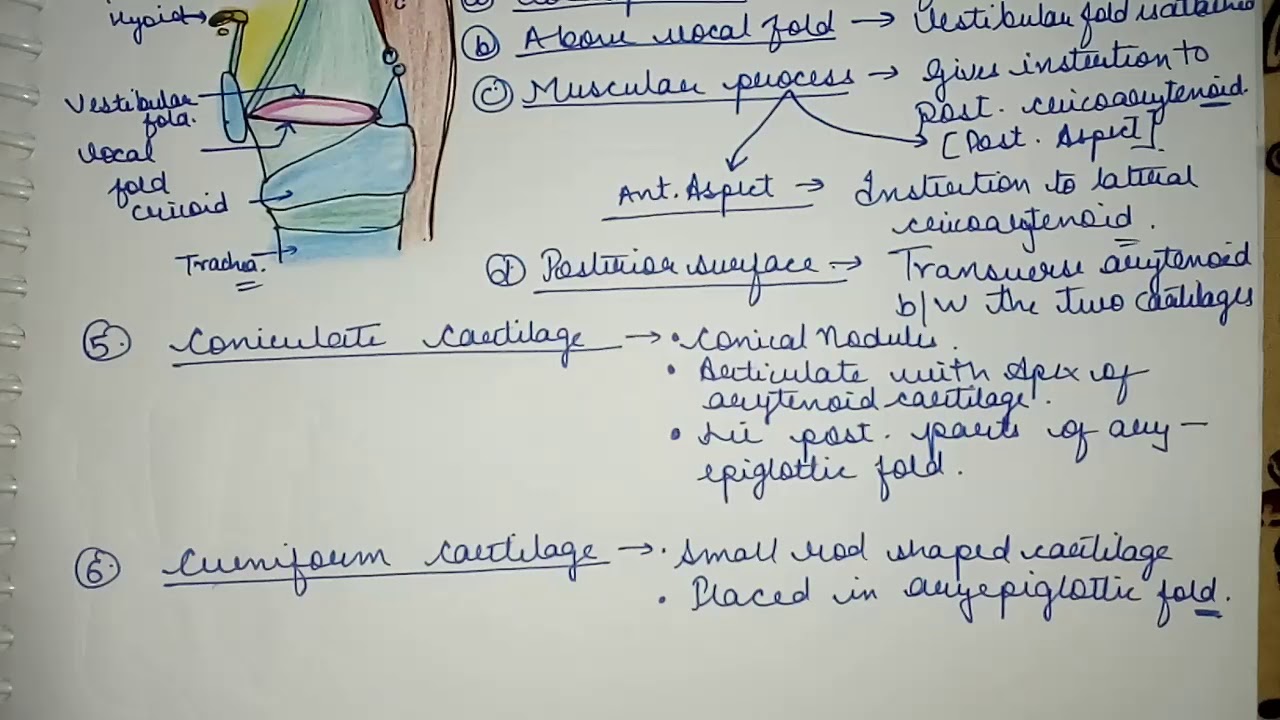 Hyoid
Vestibular
fold.
Vocal
fold
Cricoid
Trachea.
(b) Above vocal fold → Vestibular fold is attached
(c) Muscular process → Gives insertion to
post. cricoarytenoid.
[Post. Aspect].
Ant. Aspect → Insertion to lateral
cricoarytenoid.
(d) Posterior surface → Transverse arytenoid
b/w the two cartilages
(5) Corniculate cartilage → • Conical Nodules.
• Articulate with Apex of
arytenoid cartilage.
• Lie post. parts of ary-
epiglottic fold.
(6) Cuneiform cartilage → • Small rod shaped cartilage
• Placed in aryepiglottic fold.